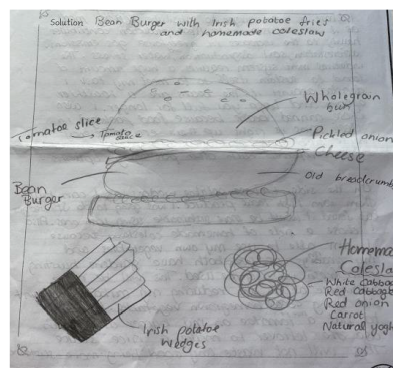 Solution Bean Burger with Irish potatoe fries
and homemade coleslaw
Wholegrain
bun
Tomatoe slice
Tomato
sauce
Pickled onion
Cheese
Old breadcrumb
Bean
Burger
Homema
Colesla
White Cabbag
Red Cabbag
Red onion
Carrot
Natural yogh
Irish potatoe
wedges